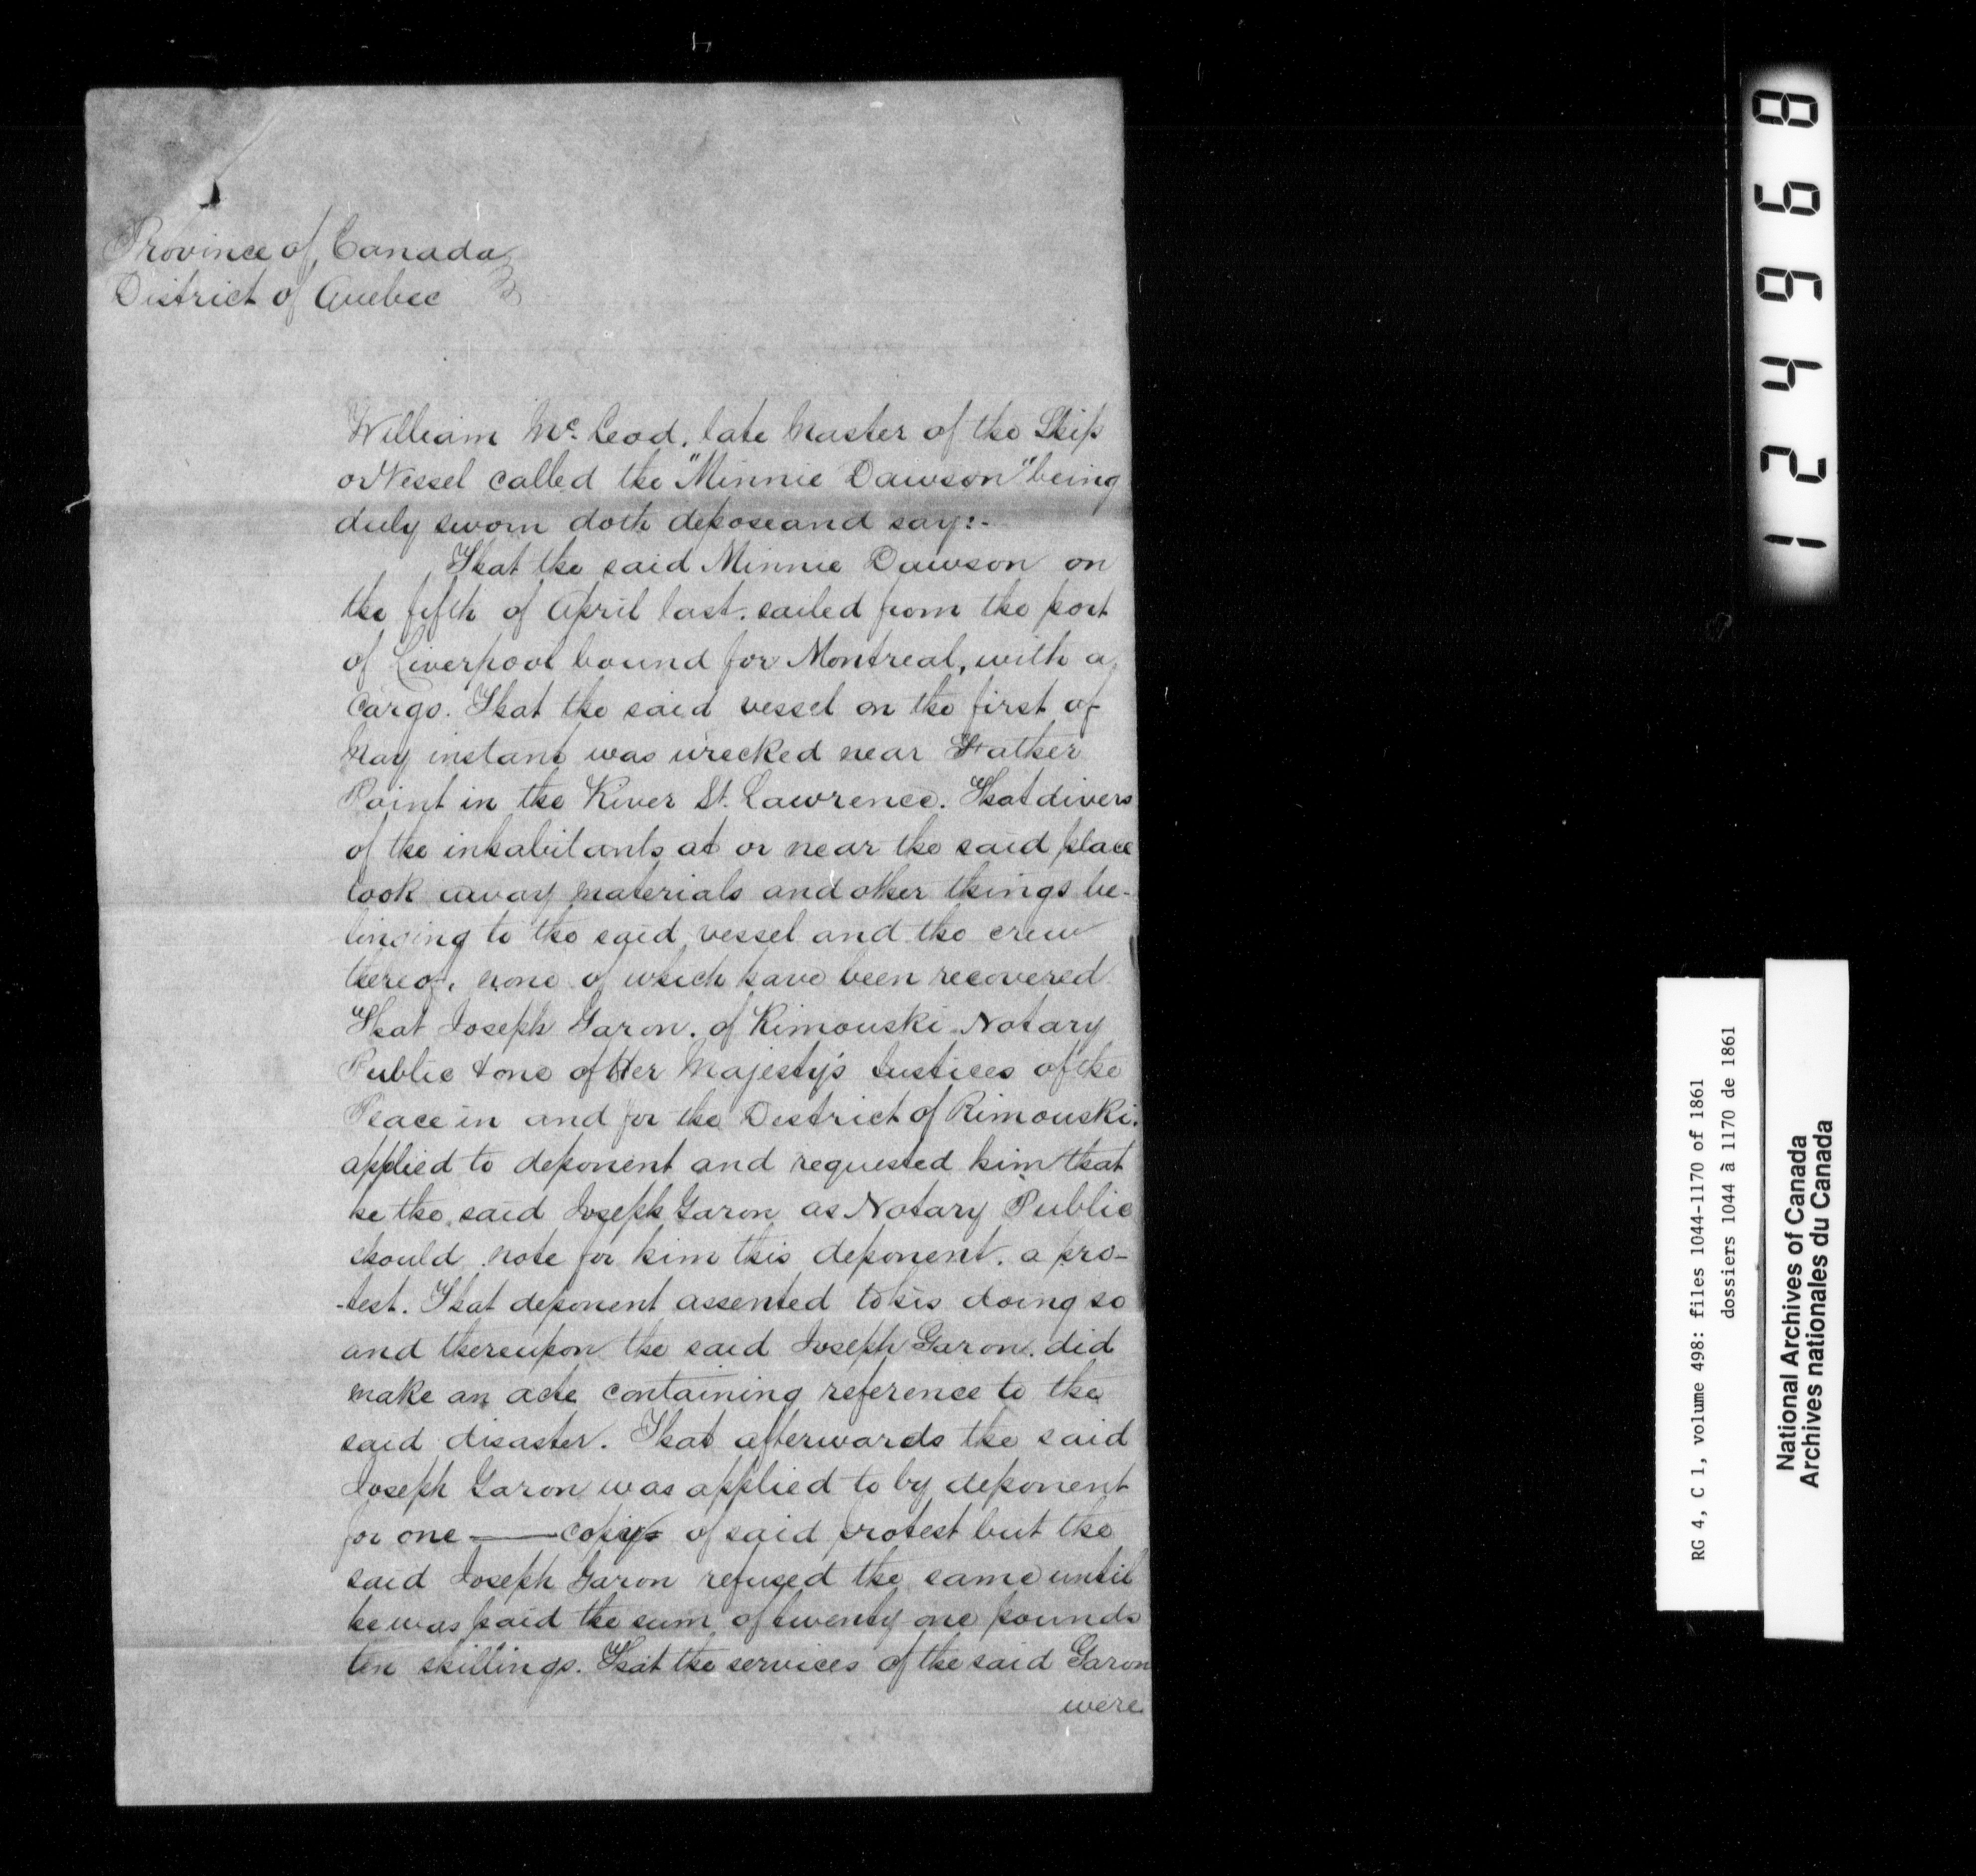 Province of Canada
District of Quebec
William Mc. Leod, late Master of the Ship
or Vessel called the "Minnie Dawson" being
duly sworn doth depose and say:-
That the said Minnie Dawson on
the fifth of April last. sailed from the port
of Liverpool bound for Montreal, with a
Cargo. That the said vessel on the first of
May instant was wrecked near Father
Point in the River St. Lawrence. That divers
of the inhabitants at or near the said place
took away materials and other things be-
longing to the said vessel and the crew
thereof, none of which have been recovered
That Joseph Garon. of Rimouski Notary
Public & one of Her Majesty's Justices of the
Peace in and for the District of Rimouski.
applied to deponent and requested him that
he the said Joseph Garon as Notary Public
should note for him this deponent. a pro-
-test. That deponent assented to his doing so
and thereupon the said Joseph Garon. did
make an acte containing reference to the
said disaster. That afterwards the said
Joseph Garon was applied to by deponent
for one — copy of said protest but the
said Joseph Garon refused the same until
he was paid the sum of twenty one pounds
ten shillings. That the services of the said Garon
were
124968
RG 4, C 1, volume 498: files 1044-1170 of 1861
dossiers 1044 à 1170 de 1861
National Archives of Canada
Archives nationales du Canada